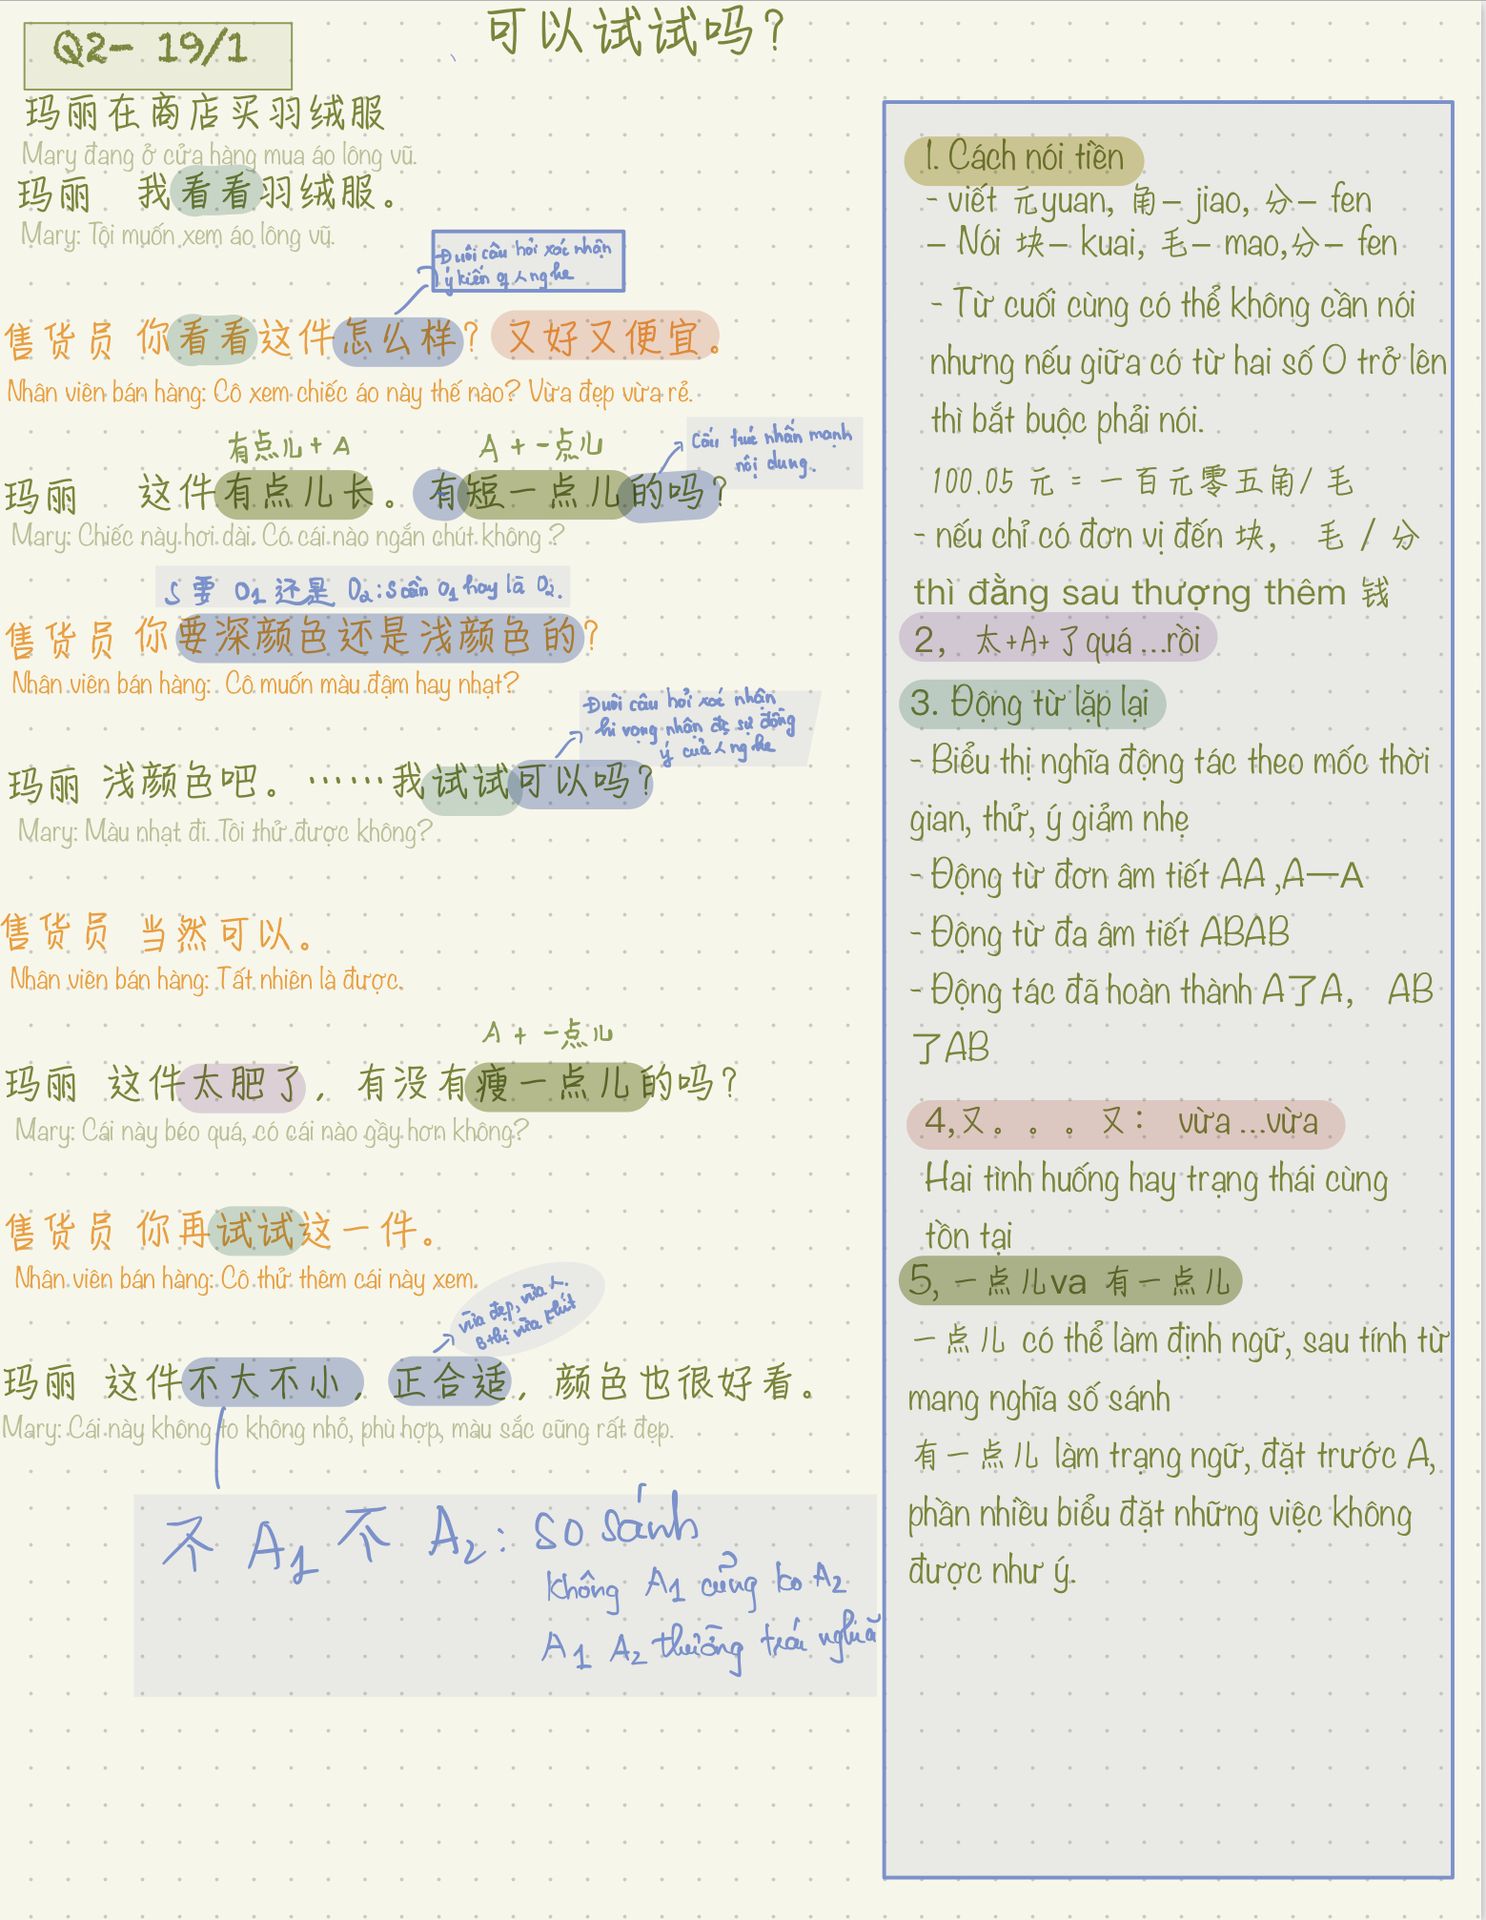 Q2- 19/1
可以试试吗?
玛丽在商店买羽绒服
Mary đang ở cửa hàng mua áo lông vũ.
玛丽 我看看羽绒服。
Mary: Tôi muốn xem áo lông vũ.
Đuôi câu hỏi xác nhận
ý kiến of 人 nghe
售货员 你看看这件怎么样? 又好又便宜。
Nhân viên bán hàng: Cô xem chiếc áo này thế nào? Vừa đẹp vừa rẻ.
有点儿 + A
A + 一点儿
Cấu trúc nhấn mạnh
nội dung.
玛丽 这件有点儿长。有短一点儿的吗?
Mary: Chiếc này hơi dài. Có cái nào ngắn chút không ?
S 要 O1 还是 O2: S cần O1 hay là O2.
售货员 你要深颜色还是浅颜色的?
Nhân viên bán hàng: Cô muốn màu đậm hay nhạt?
Đuôi câu hỏi xác nhận
hi vọng nhận đc sự đồng
ý của 人 nghe
玛丽 浅颜色吧。……我试试可以吗?
Mary: Màu nhạt đi. Tôi thử được không?
售货员 当然可以。
Nhân viên bán hàng: Tất nhiên là được.
A + 一点儿
玛丽 这件太肥了, 有没有瘦一点儿的吗?
Mary: Cái này béo quá, có cái nào gầy hơn không?
售货员 你再试试这一件。
Nhân viên bán hàng: Cô thử thêm cái này xem.
vừa đẹp, vừa 人.
Bthị vừa khít
玛丽 这件不大不小, 正合适, 颜色也很好看。
Mary: Cái này không to không nhỏ, phù hợp, màu sắc cũng rất đẹp.
不 A1 不 A2: so sánh
không A1 cũng ko A2
A1 A2 thường trái nghĩa
1. Cách nói tiền
- viết 元yuan, 角- jiao, 分- fen
- Nói 块- kuai, 毛- mao,分- fen
- Từ cuối cùng có thể không cần nói
nhưng nếu giữa có từ hai số 0 trở lên
thì bắt buộc phải nói.
100.05 元 = 一百元零五角/ 毛
- nếu chỉ có đơn vị đến 块, 毛 / 分
thì đằng sau thượng thêm 钱
2, 太+A+了quá ...rồi
3. Động từ lặp lại
- Biểu thị nghĩa động tác theo mốc thời
gian, thử, ý giảm nhẹ
- Động từ đơn âm tiết AA ,A一A
- Động từ đa âm tiết ABAB
- Động tác đã hoàn thành A了A, AB
了AB
4,又。。。又: vừa ...vừa
Hai tình huống hay trạng thái cùng
tồn tại
5, 一点儿va 有一点儿
一点儿 có thể làm định ngữ, sau tính từ
mang nghĩa số sánh
有一点儿 làm trạng ngữ, đặt trước A,
phần nhiều biểu đặt những việc không
được như ý.